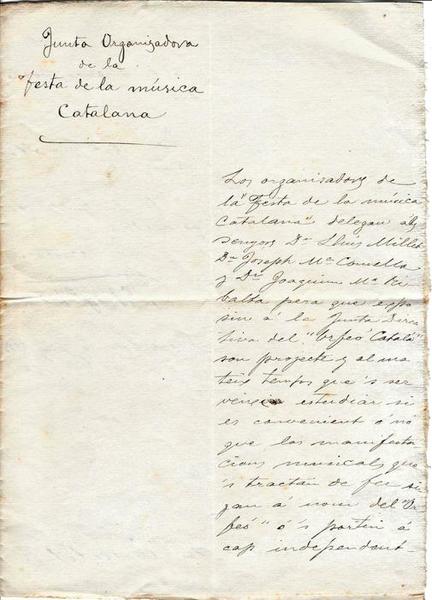 Junta Organizadora
de la
festa de la música
Catalana
Los organisadors de
la "Festa de la música
Catalana" delegan als
senyors Dn Lluis Millet
Dn Joseph Mª Comella
y Dn Joaquim Mª Ri
balta pera que expo
sin á la Junta Direc
tiva del "Orfeó Catalá"
son projecte y al ma
teix temps que 's ser
veixin estudiar si
es convenient ó nó
que las manifesta
cions musicals que
's tractan de fer si
gan á nom del "Or
feó" ó 's portin á
cap independent-